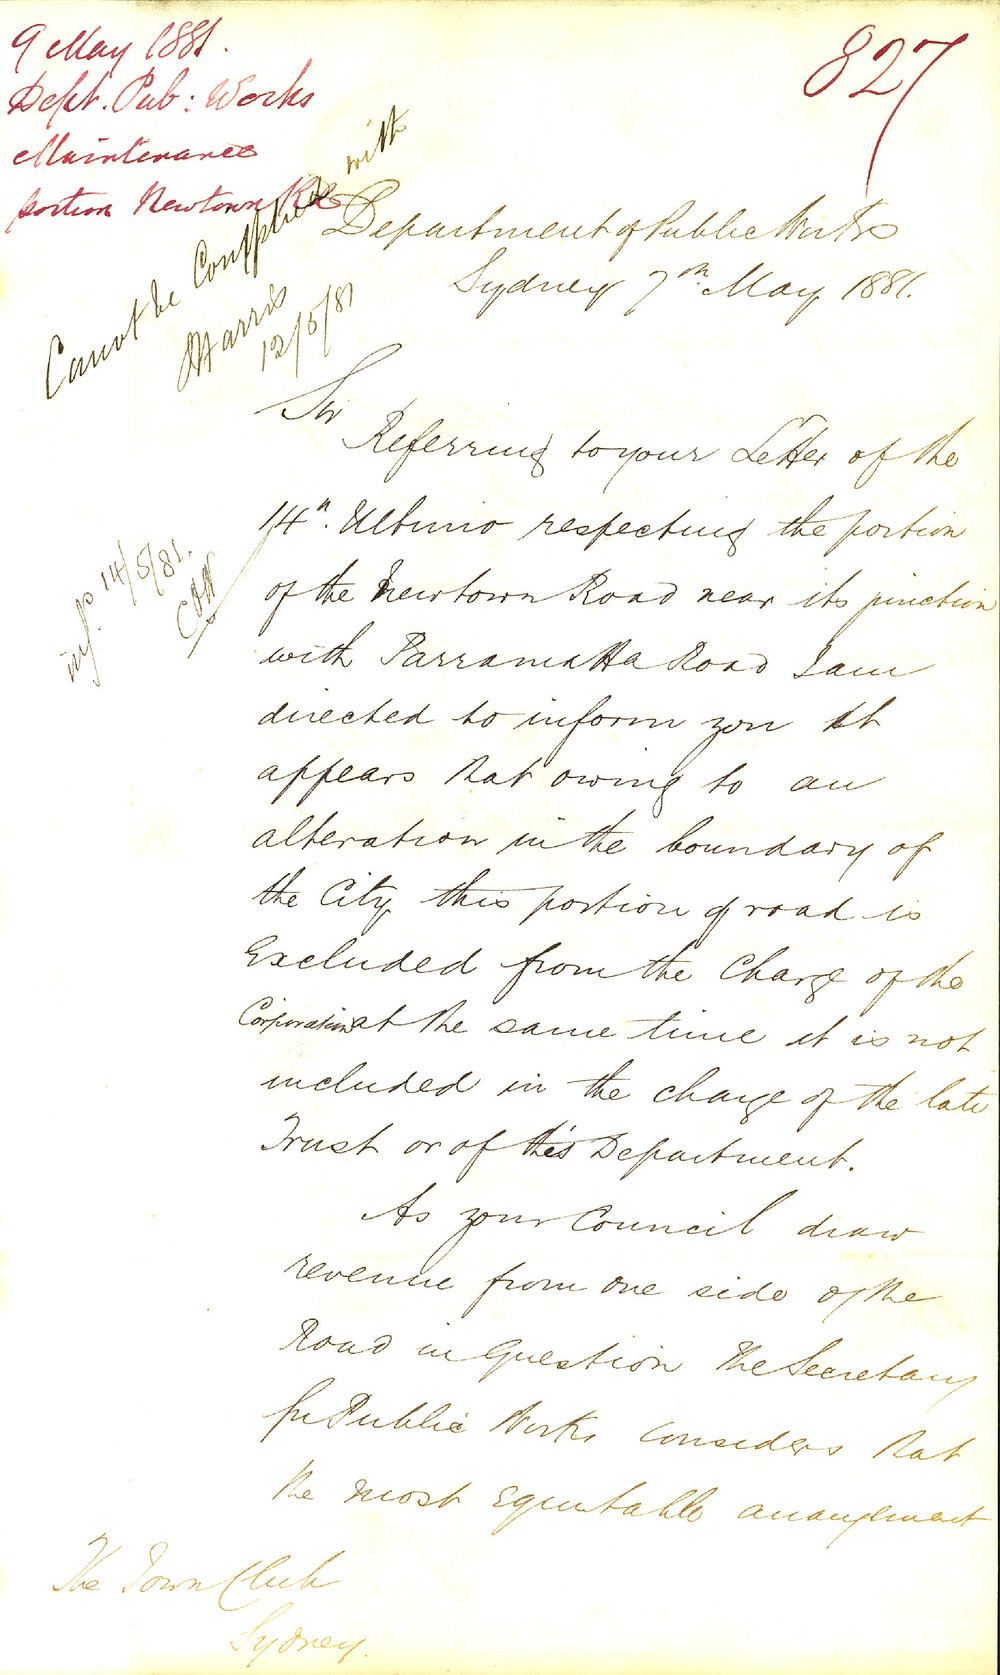 9 May 1881.
Dept. Pub: Works
Maintenance
portion Newtown Rd
827
Cannot be Complied with
Harris
12/5/81
Department of Public Works
Sydney 7th. May 1881.
Sir
Referring to your Letter of the
14th. Ultimo respecting the portion
of the Newtown Road near its junction
with Parramatta Road I am
directed to inform you it
appears that owing to an
alteration in the boundary of
the City this portion of road is
Excluded from the Charge of the
Corporation at the same time it is not
included in the charge of the late
Trust or of this Department.
As your Council draw
revenue from one side of the
Road in Question the Secretary
for Public Works considers that
the most Equitable arrangement
inf. 14/5/81.
The Town Clerk
Sydney.